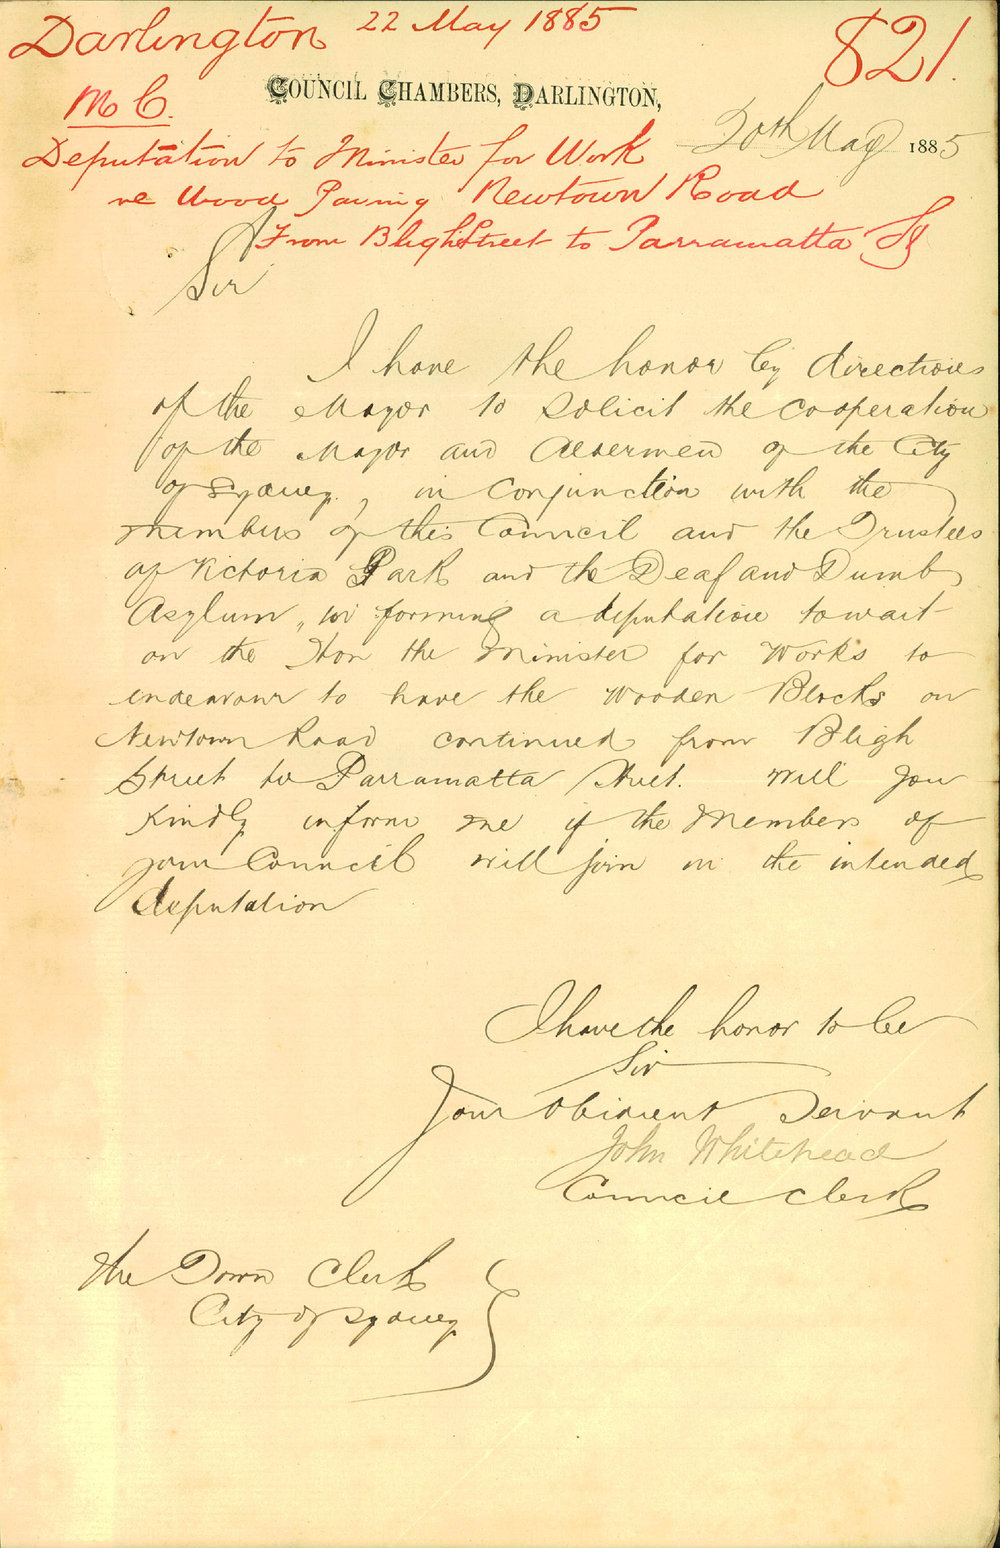 Darlington 22 May 1885 821.
M C.
COUNCIL CHAMBERS, DARLINGTON,
20th May 1885
Deputation to Minister for Work
re Wood Paving Newtown Road
From Bligh Street to Parramatta St
Sir
I have the honor by directions
of the Mayor to solicit the cooperation
of the Mayor and Aldermen of the City
of Sydney, in conjunction with the
members of this Council and the Trustees
of Victoria Park and the Deaf and Dumb
Asylum, in forming a deputation to wait
on the Hon the Minister for Works to
endeavour to have the Wooden Blocks on
Newtown Road continued from Bligh
Street to Parramatta Street. Will you
kindly inform me if the Members of
your Council will join in the intended
deputation
I have the honor to be
Sir
Your Obedient Servant
John Whitehead
Council Clerk
The Town Clerk
City of Sydney